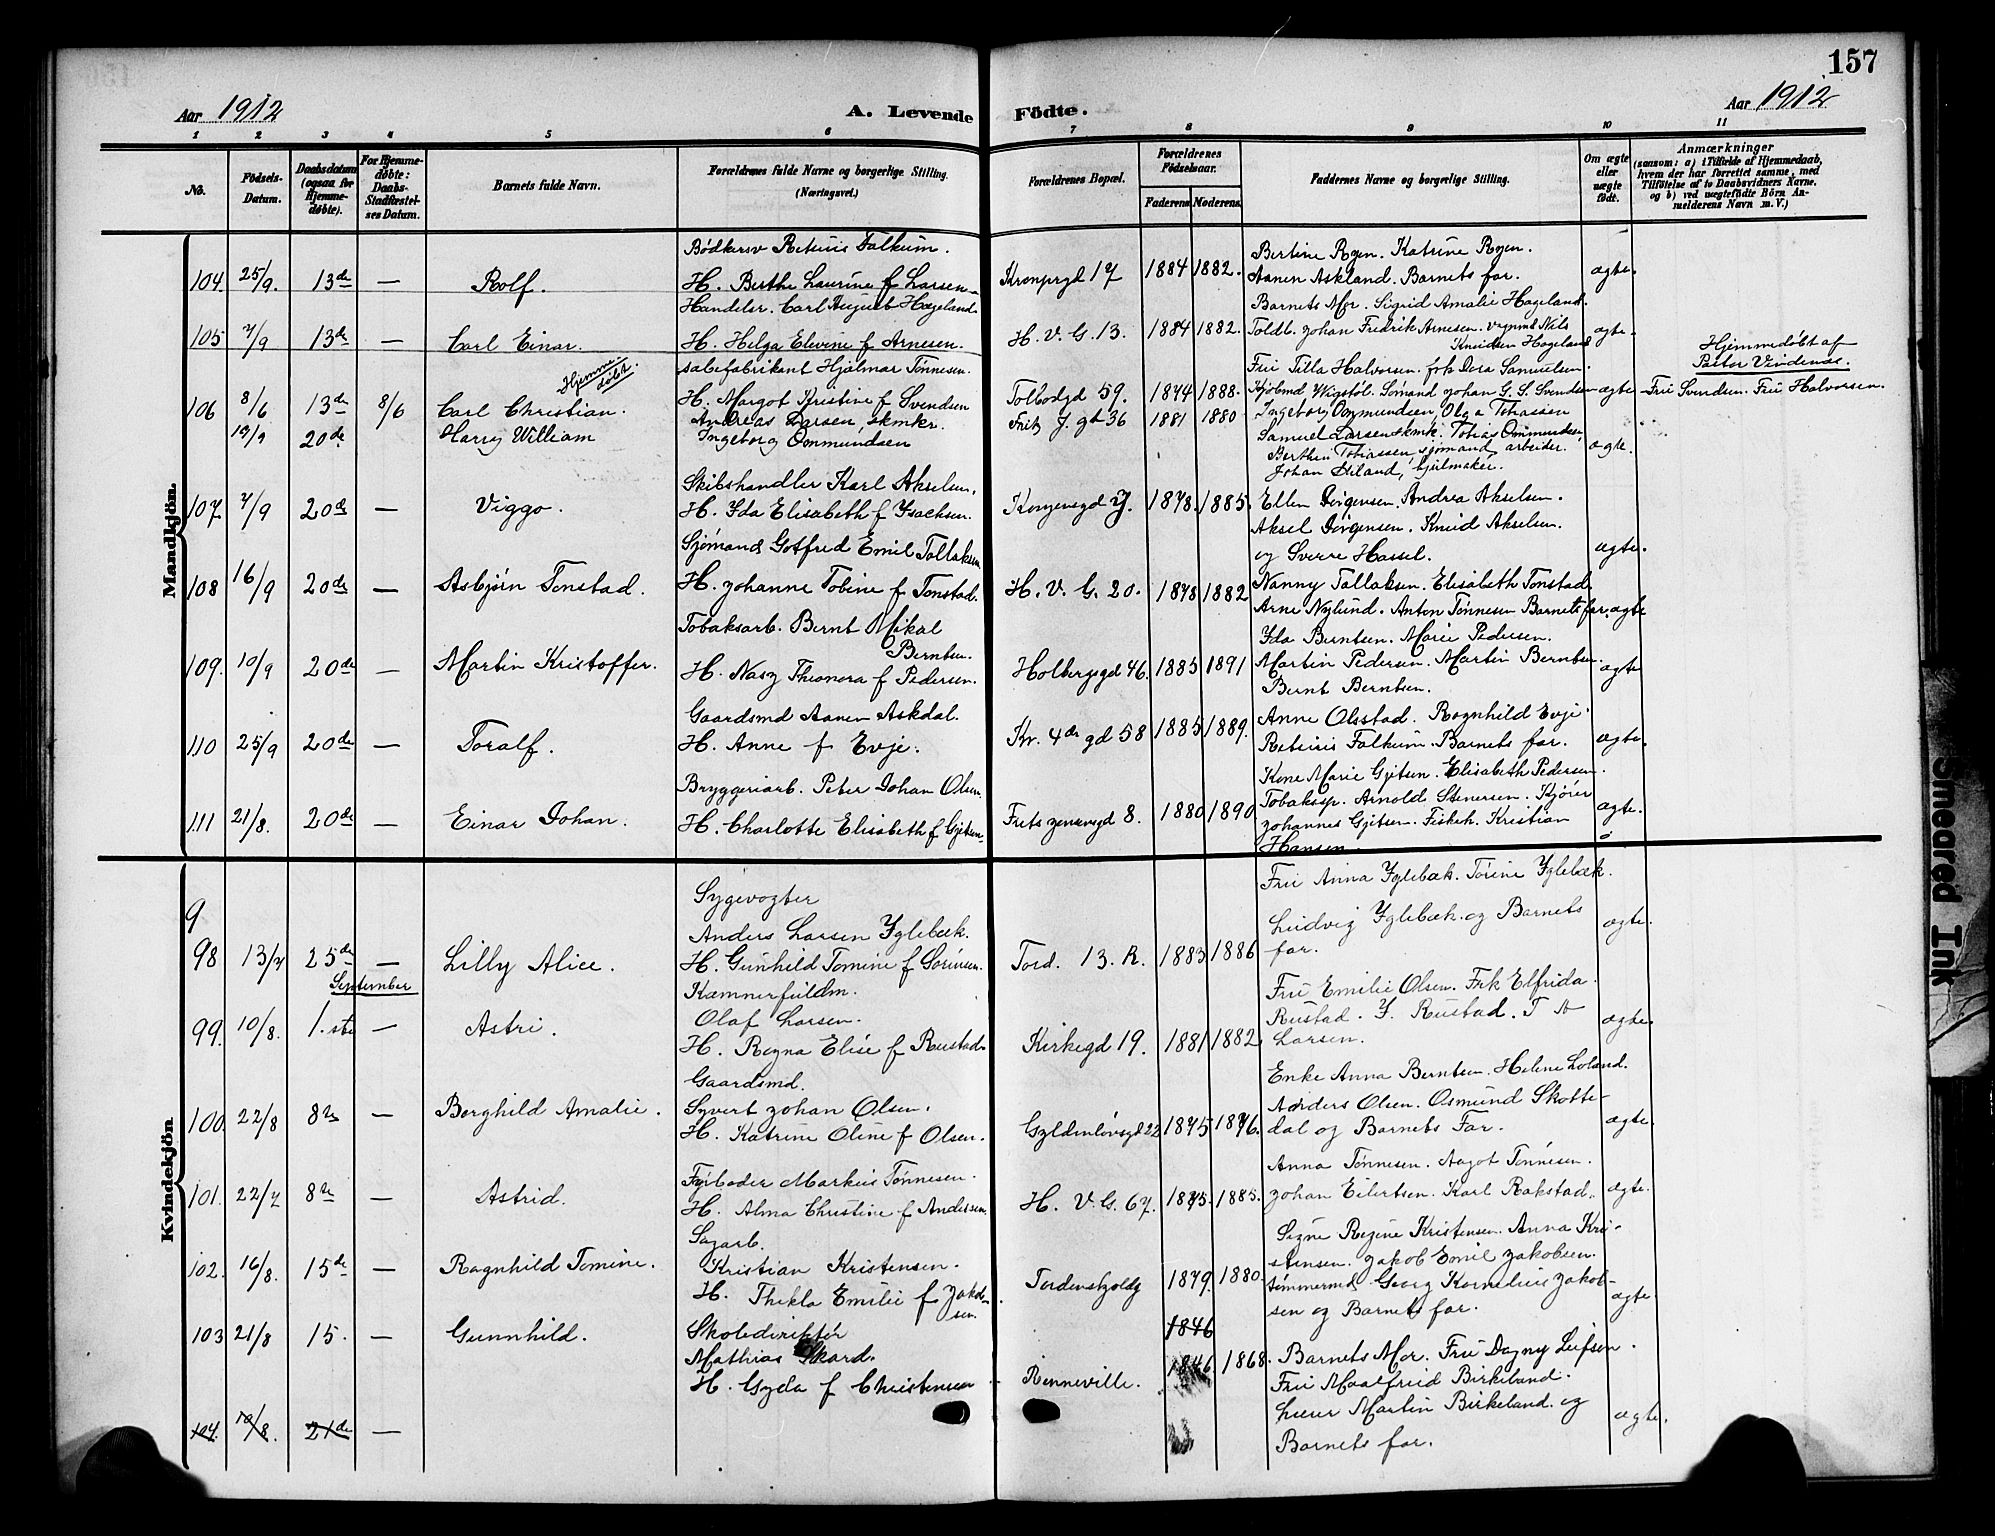 157
Aar 1912
A. Levende Födte.
Aar 1912
1 2 3 4 5 6 7 8 9 10 11
No.
Födsels-Datum.
Daabsdatum (ogsaa for Hjemme-döbte).
For Hjemme-döbte: Daabs-Stadfæstel-ses Datum.
Barnets fulde Navn.
Forældrenes fulde Navne og borgerlige Stilling. (Næringsvei.)
Forældrenes Bopæl.
Forældrenes Födselsaar.
Faderens. Moderens.
Faddernes Navne og borgerlige Stilling.
Om ægte eller uægte födt.
Anmærkninger
(saasom: a) i Tilfælde af Hjemmedaab,
hvem der har forrettet samme, med
Tilföielse af to Daabsvidners Navne.
og b) ved uægtefödte Börn An-
melderens Navn m. V.)
Mandkjön.
Bødkersv Reteüis Falkum.
104. 25/9. 13de — Rolf. H. Berthe Laurine f Larsen
Kronprgd 17 1884 1882.
Bertine Ryen. Katrine Ryen.
Aanen Askland. Barnets far. ægte.
Handelsr. Carl August Hageland.
105 7/9 13de — Carl Einar. H. Helga Elevine f Arnesen.
H. V. G. 13. 1884 1882.
Barnets Mor. Sigrid Amalie Hageland.
Toldb. Johan Fredrik Arnesen. Nils
Knudsen Hageland ægte.
Sæbefabrikant Hjalmar Tønnesen.
106 8/6 13de 8/6 Carl Christian. Hjemme døbt. H. Margot Kristine f Svendsen
Tolbodgd 59. 1874 1888.
Fru Tilla Halvorsen. frk Dora Samuelsen.
Hjalmd Wigstøl. Sømand Johan G. S. Svendsen ægte
Hjemmedøbt af
Pastor Vindenæs.
Fru Svendsen. Fru Halvorsen.
19/9 20de Harry William Andreas Larsen, skmkr.
Ingeborg Ommundsen
Fritz J. gt 36 1881 1880
Ingeborg Ommundsen, Olga Tobiasen
Samuel Larsen skmk. Tobias Ommundsen,
Berthin Tobiassen, sjømand, arbeider.
Johan Øiland, hjulmaker. ægte.
107 7/9 20de — Viggo. Skibshandler Karl Akselsen.
H. Ida Elisabeth f Isachsen.
Kongensgd 1878. 1885.
Ellen Jørgensen. Andrea Akselsen.
Aksel Jørgensen. Knud Akselsen.
og Sverre Hassel. ægte.
108 16/9 20de — Asbjørn Tonstad. Sjømand Gotfred Emil Tallaksen
H. Johanne Tobine f Tonstad.
H. V. G. 20. 1878 1882
Nanny Tallaksen. Elisabeth Tonstad.
Arne Nylund. Anton Tønnesen Barnets far. ægte
109. 10/9 20de — Martin Kristoffer. Tobaksarb. Bernt Mikal
Berntsen.
H. Nasy Theonora f Pedersen.
Holbergsgd 46. 1885 1891
Ida Berntsen. Marie Pedersen.
Martin Pedersen. Martin Berntsen.
Bernt Berntsen. ægte
110 25/9 20de — Toralf. Gaardsmd Aanen Askdal.
H. Anne f Evje.
Kv. 4de gd 58 1885 1889.
Anne Olsstad. Ragnhild Evje.
Reteüis Falkum. Barnets far. ægte.
111 21/8. 20de — Einar Johan. Bryggeriarb. Peter Johan Olsen.
H. Charlotte Elisabeth f Gjitsen
Frits Jensensgd 8. 1880 1890
Kone Marie Gjitsen. Elisabeth Pedersen.
Tobakssp. Arnold Stenersen. Kjører
Johannes Gjitsen. Fiskeh. Kristian
Hansen. ægte.
Kvindekjön
9
98 13/7 25de — Lilly Alice. Sygevogter
Anders Larsen Yglebæk.
H. Gunhild Tomine f Sørensen.
Tord. 13. R. 1883 1886
Fru Anna Yglebæk. Torine Yglebæk.
Ludvig Yglebæk. og Barnets
far. ægte.
September
99. 10/8. 1. ste — Astri. Kæmnerfuldm.
Olaf Larsen.
H. Ragna Elise f Rustad.
Kirkegd 19. 1881 1882
Fru Emilie Olsen. Frk Elfrida
Rustad. J. Rustad. T
Larsen. ægte.
100. 22/8 8de — Borghild Amalie. Gaardsmd.
Syvert Johan Olsen.
H. Katrine Oline f Olsen.
Gyldenløvsgd 22 1875 1876.
Enke Anna Berntsen. Helene Loland.
Anders Olsen. Osmund Skotte-
dal og Barnets Far. ægte.
101. 22/7 8de — Astrid. Fyrbøder Markus Tønnesen.
H. Alma Christine f Andersen.
H. V. G. 67. 1875. 1885.
Anna Tønnesen. Aagot Tønnesen.
Johan Eilertsen. Karl Rakstad. ægte.
102. 16/8. 15de — Ragnhild Tomine. Sagarb.
Kristian Kristensen.
H. Thekla Emilie f Jakob-
sen.
Tordenskjoldg 1879. 1880.
Signe Regine Kristensen. Anna Kri-
stensen. Jakob Emil Jakobsen.
tømmermd Georg Kornelius Jakob-
sen og Barnets far. ægte.
103 21/8 15. — Gunnhild. Skoledirektør
Mathias Skard.
H. Gyda f Christensen
Rinneville. 1846 1846 1868.
Barnets Mor. Fru Dagny Leifsen.
Fru Maalfrid Birkeland.
Lærer Martin Birkeland. og
Barnets far. ægte.
104. 10/8. 21de —
Smeared Ink